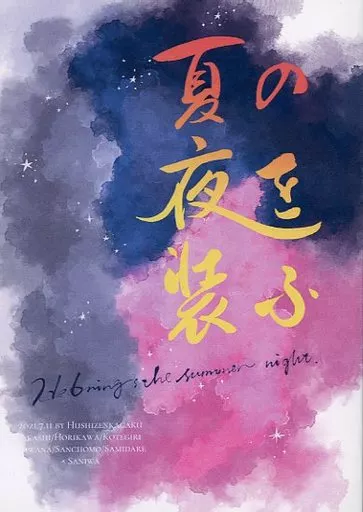 夏の
夜を
装ふ
He brings the summer night.
2021.7.11 BY HUSHIZENKAGAKU
AKASHI/HORIKAWA/KOTEGIRI
/SANCHOMO/SAMIDARE
× SANIWA